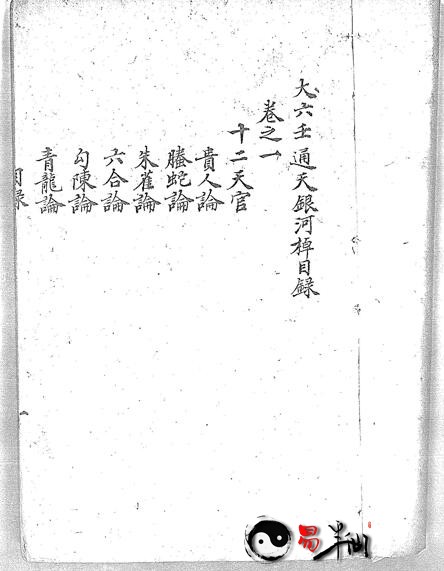 大六壬通天銀河棹目録
卷之一
十二天官
貴人論
螣蛇論
朱雀論
六合論
勾陳論
青龍論
目録
易半仙